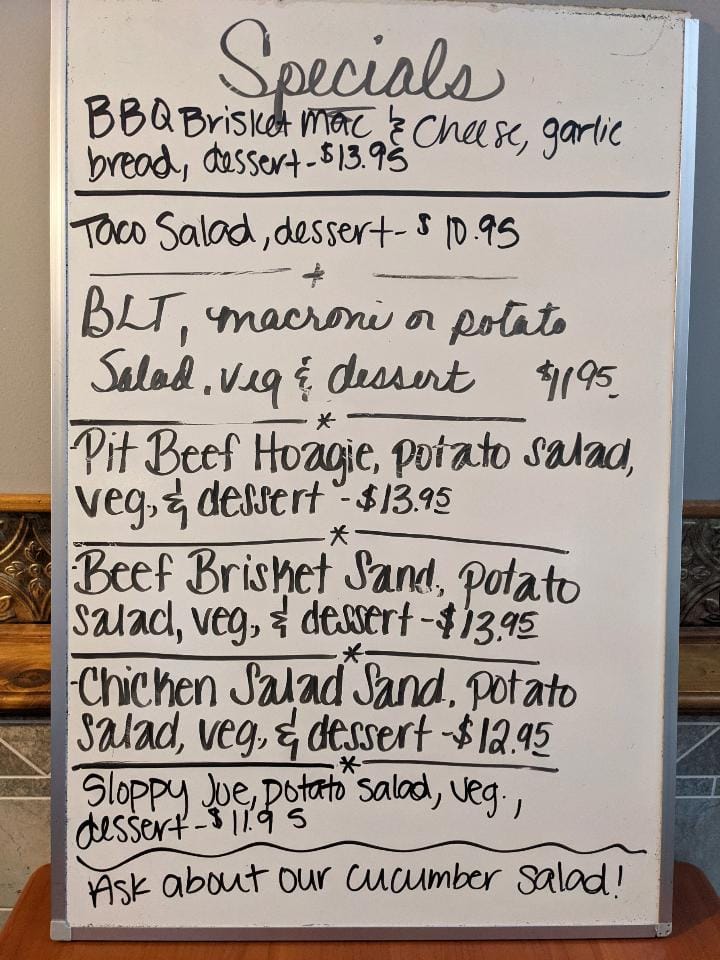 Specials
BBQ Brisket Mac & Cheese, garlic
bread, dessert - $13.95
Taco Salad, dessert - $10.95
BLT, macroni or potato
Salad, veg & dessert $11.95
Pit Beef Hoagie, potato salad,
veg., & dessert - $13.95
Beef Brisket Sand, potato
salad, veg., & dessert - $13.95
Chicken Salad Sand, potato
salad, veg., & dessert - $12.95
Sloppy Joe, potato salad, veg.,
dessert - $11.95
Ask about our cucumber salad!